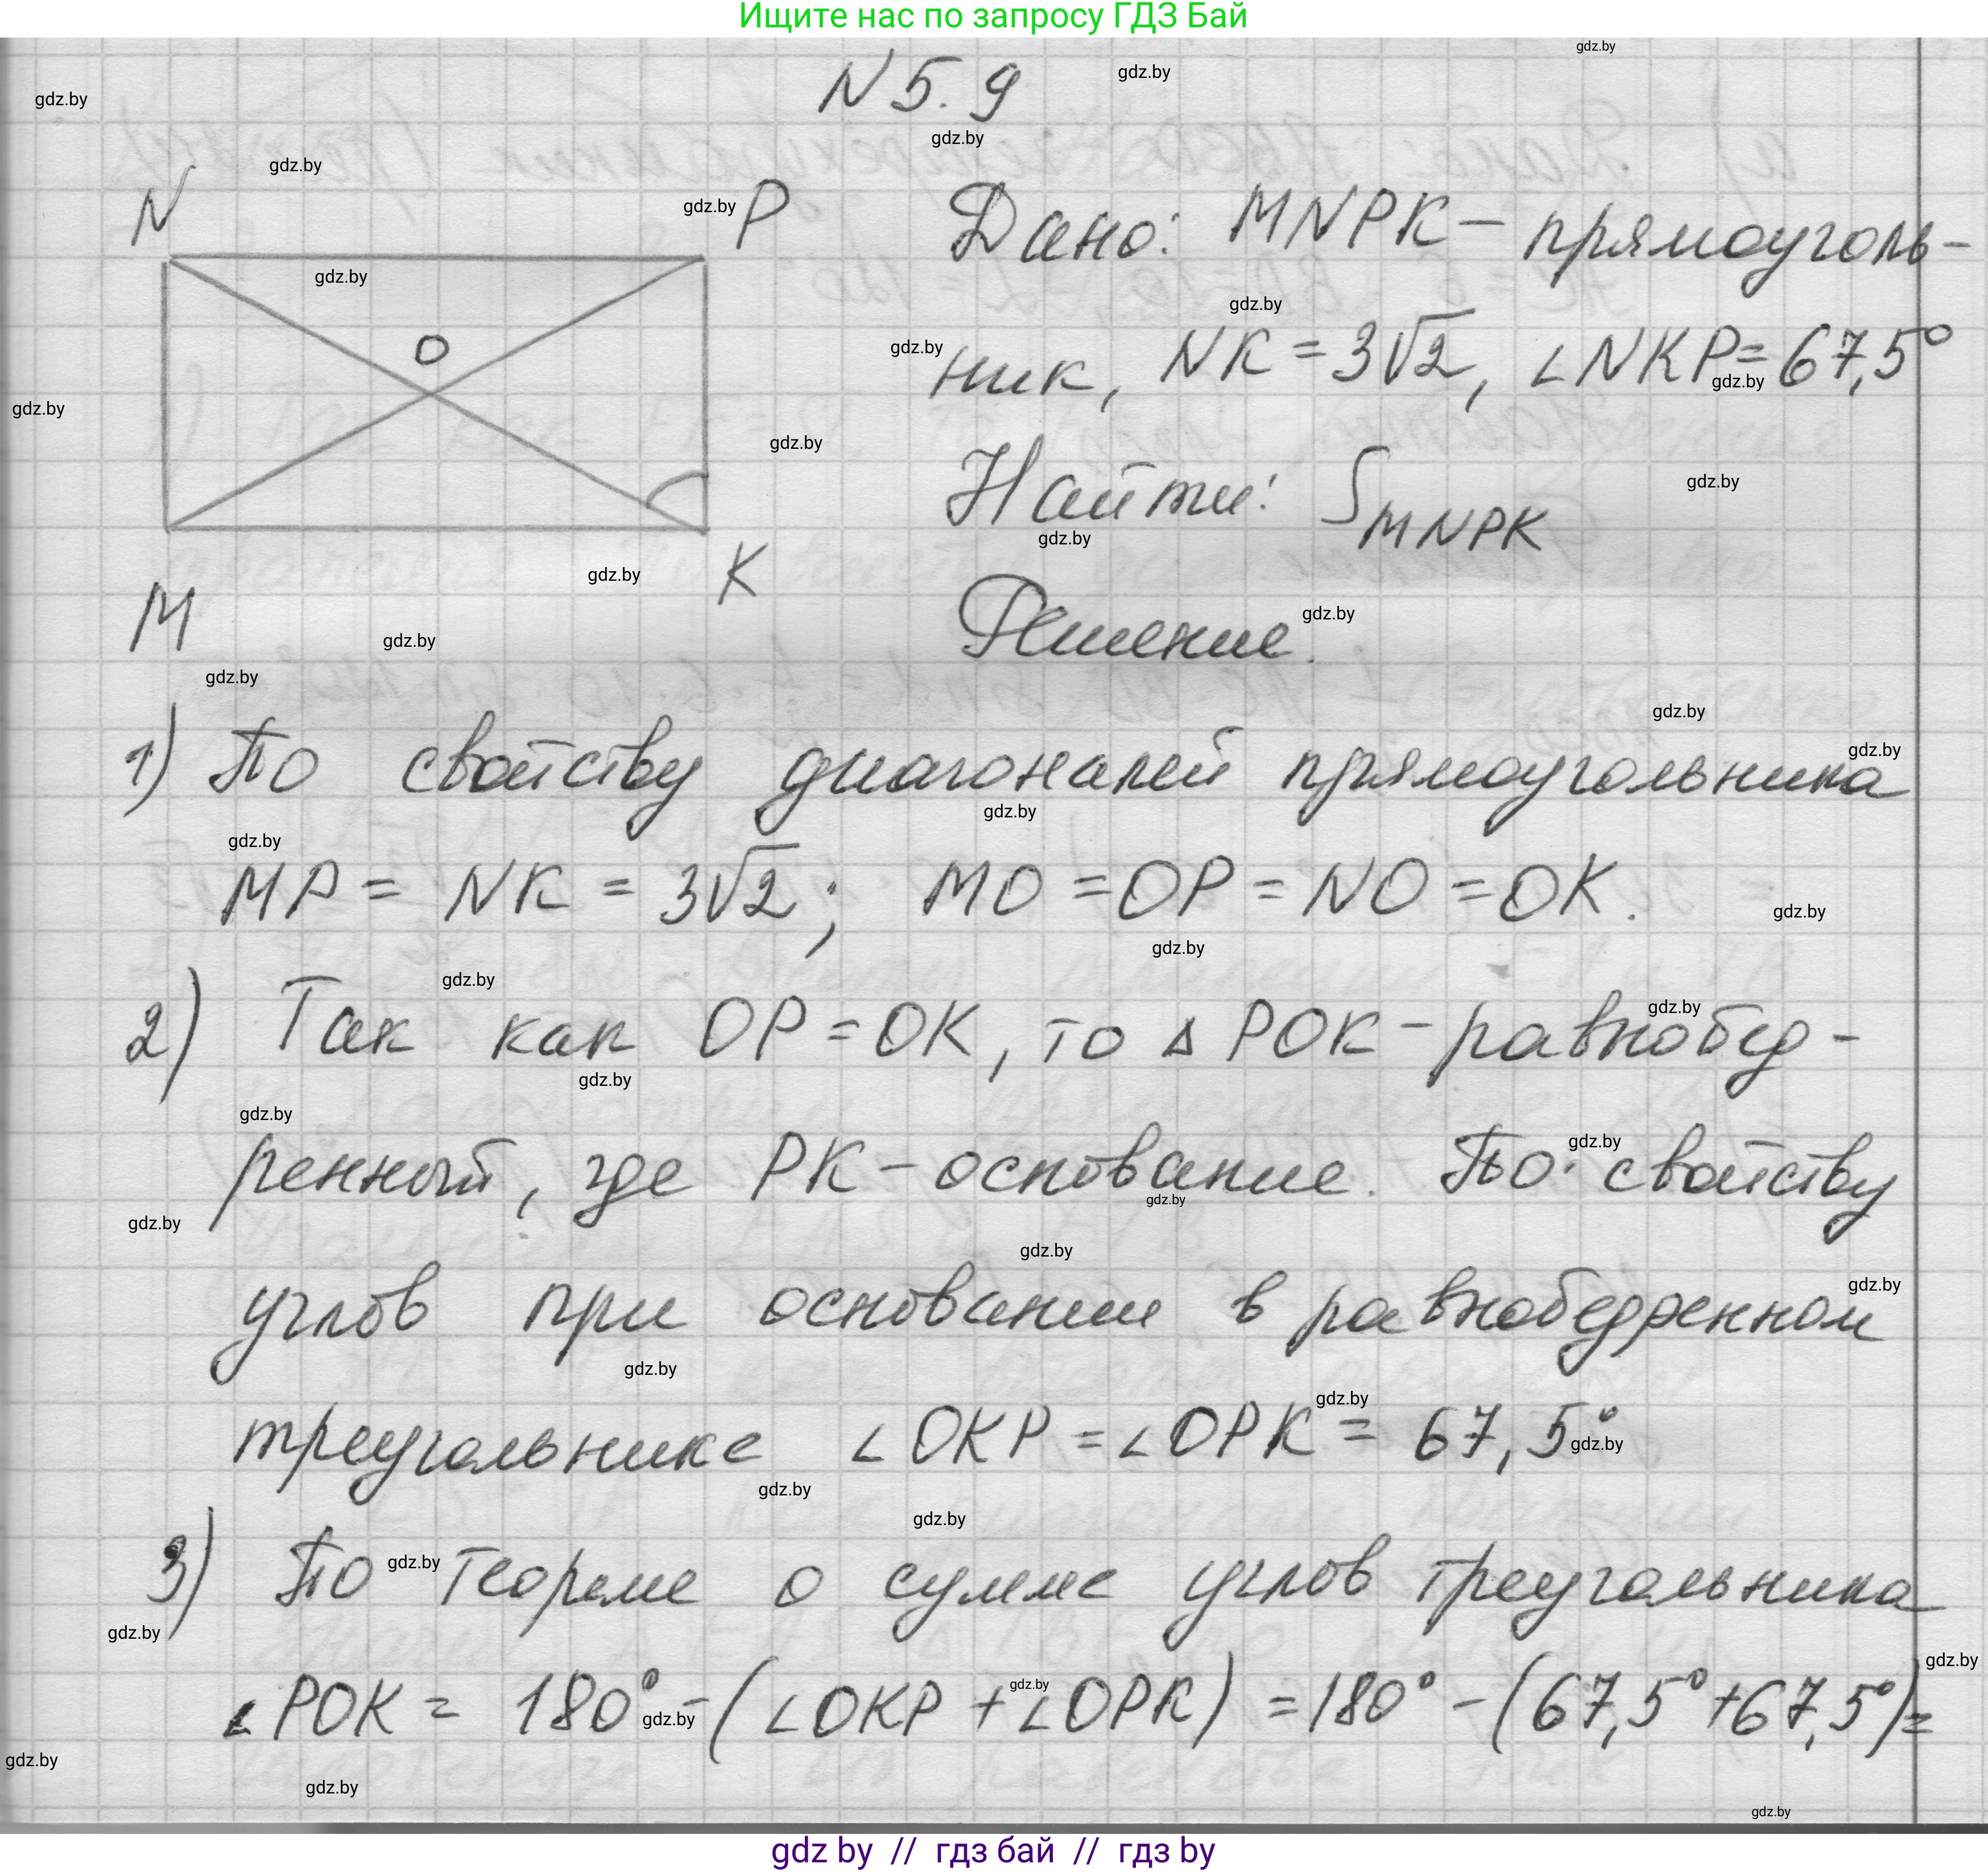 Ищите нас по запросу ГДЗ Бай
N 5.9
N
P
O
M
K
Дано: MNPK – прямоуголь-
ник, NK = 3√2, ∠NKP = 67,5°
Найти: S MNPK
Решение.
1) По свойству диагоналей прямоугольника
MP = NK = 3√2; MO = OP = NO = OK.
2) Так как OP = OK, то △ POK – равнобед-
ренный, где PK – основание. По свойству
углов при основании в равнобедренном
треугольнике ∠OKP = ∠OPK = 67,5°
3) По теореме о сумме углов треугольника
∠POK = 180° – (∠OKP + ∠OPK) = 180° – (67,5° + 67,5°) =
gdz.by
gdz by // гдз бай // гдз by